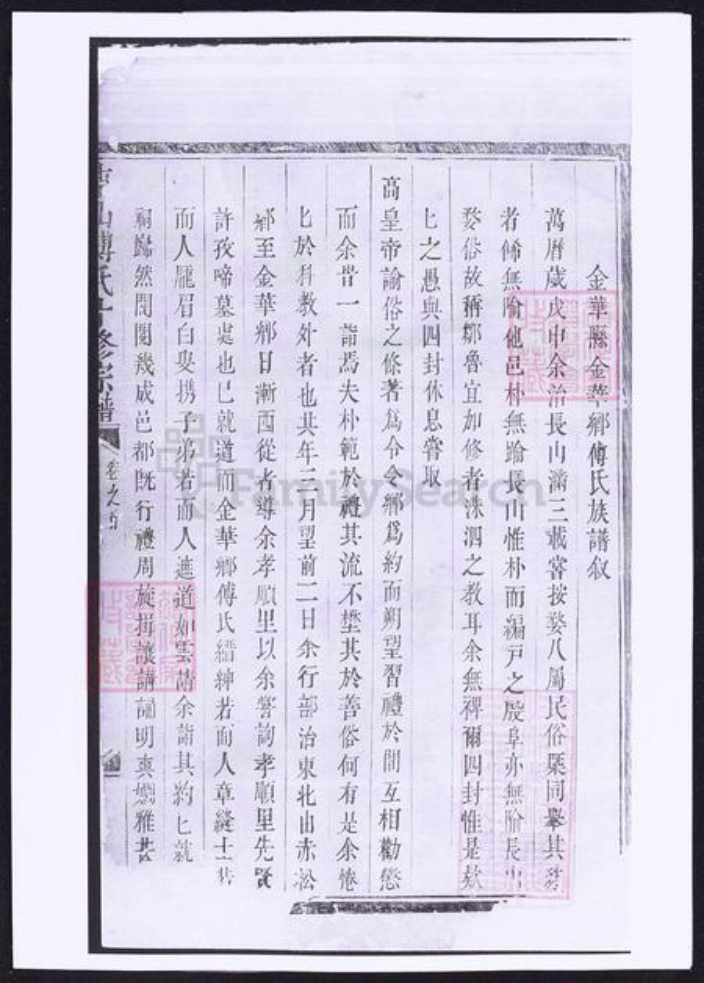 金華縣金華鄉傅氏族譜叙
萬曆歲戊申余治長山滿三載嘗按婺八屬民俗槩同舉其
者俙無隃他邑朴無踰長山惟朴而編戸之殷阜亦無隃長
婺俗故稱鄒魯宜加修者洙泗之教耳余無裨爾四封惟是欸
匕之愚與四封休息嘗取
高皇帝諭俗之條著爲令令鄉爲約而朔望習禮於閭互相勸懲
而余昔一詣焉夫朴範於禮其流不埜其於善俗何有是余惓
匕於科教外者也其年三月望前二日余行部治東北由赤松
鄉至金華鄉日漸西從者導余孝順里以余嘗詢孝順里先賢
許孜啼墓處也匕就道而金華鄉傅氏縉紳若而人章縫士
而人龎眉白叟携子弟若而人遮道如雲請余詣其約匕就
祠巋然閎閩幾成邑都旣行禮周旋揖讓講誦明爽嫻雅
山傅氏修宗譜
卷之
FamilySearch